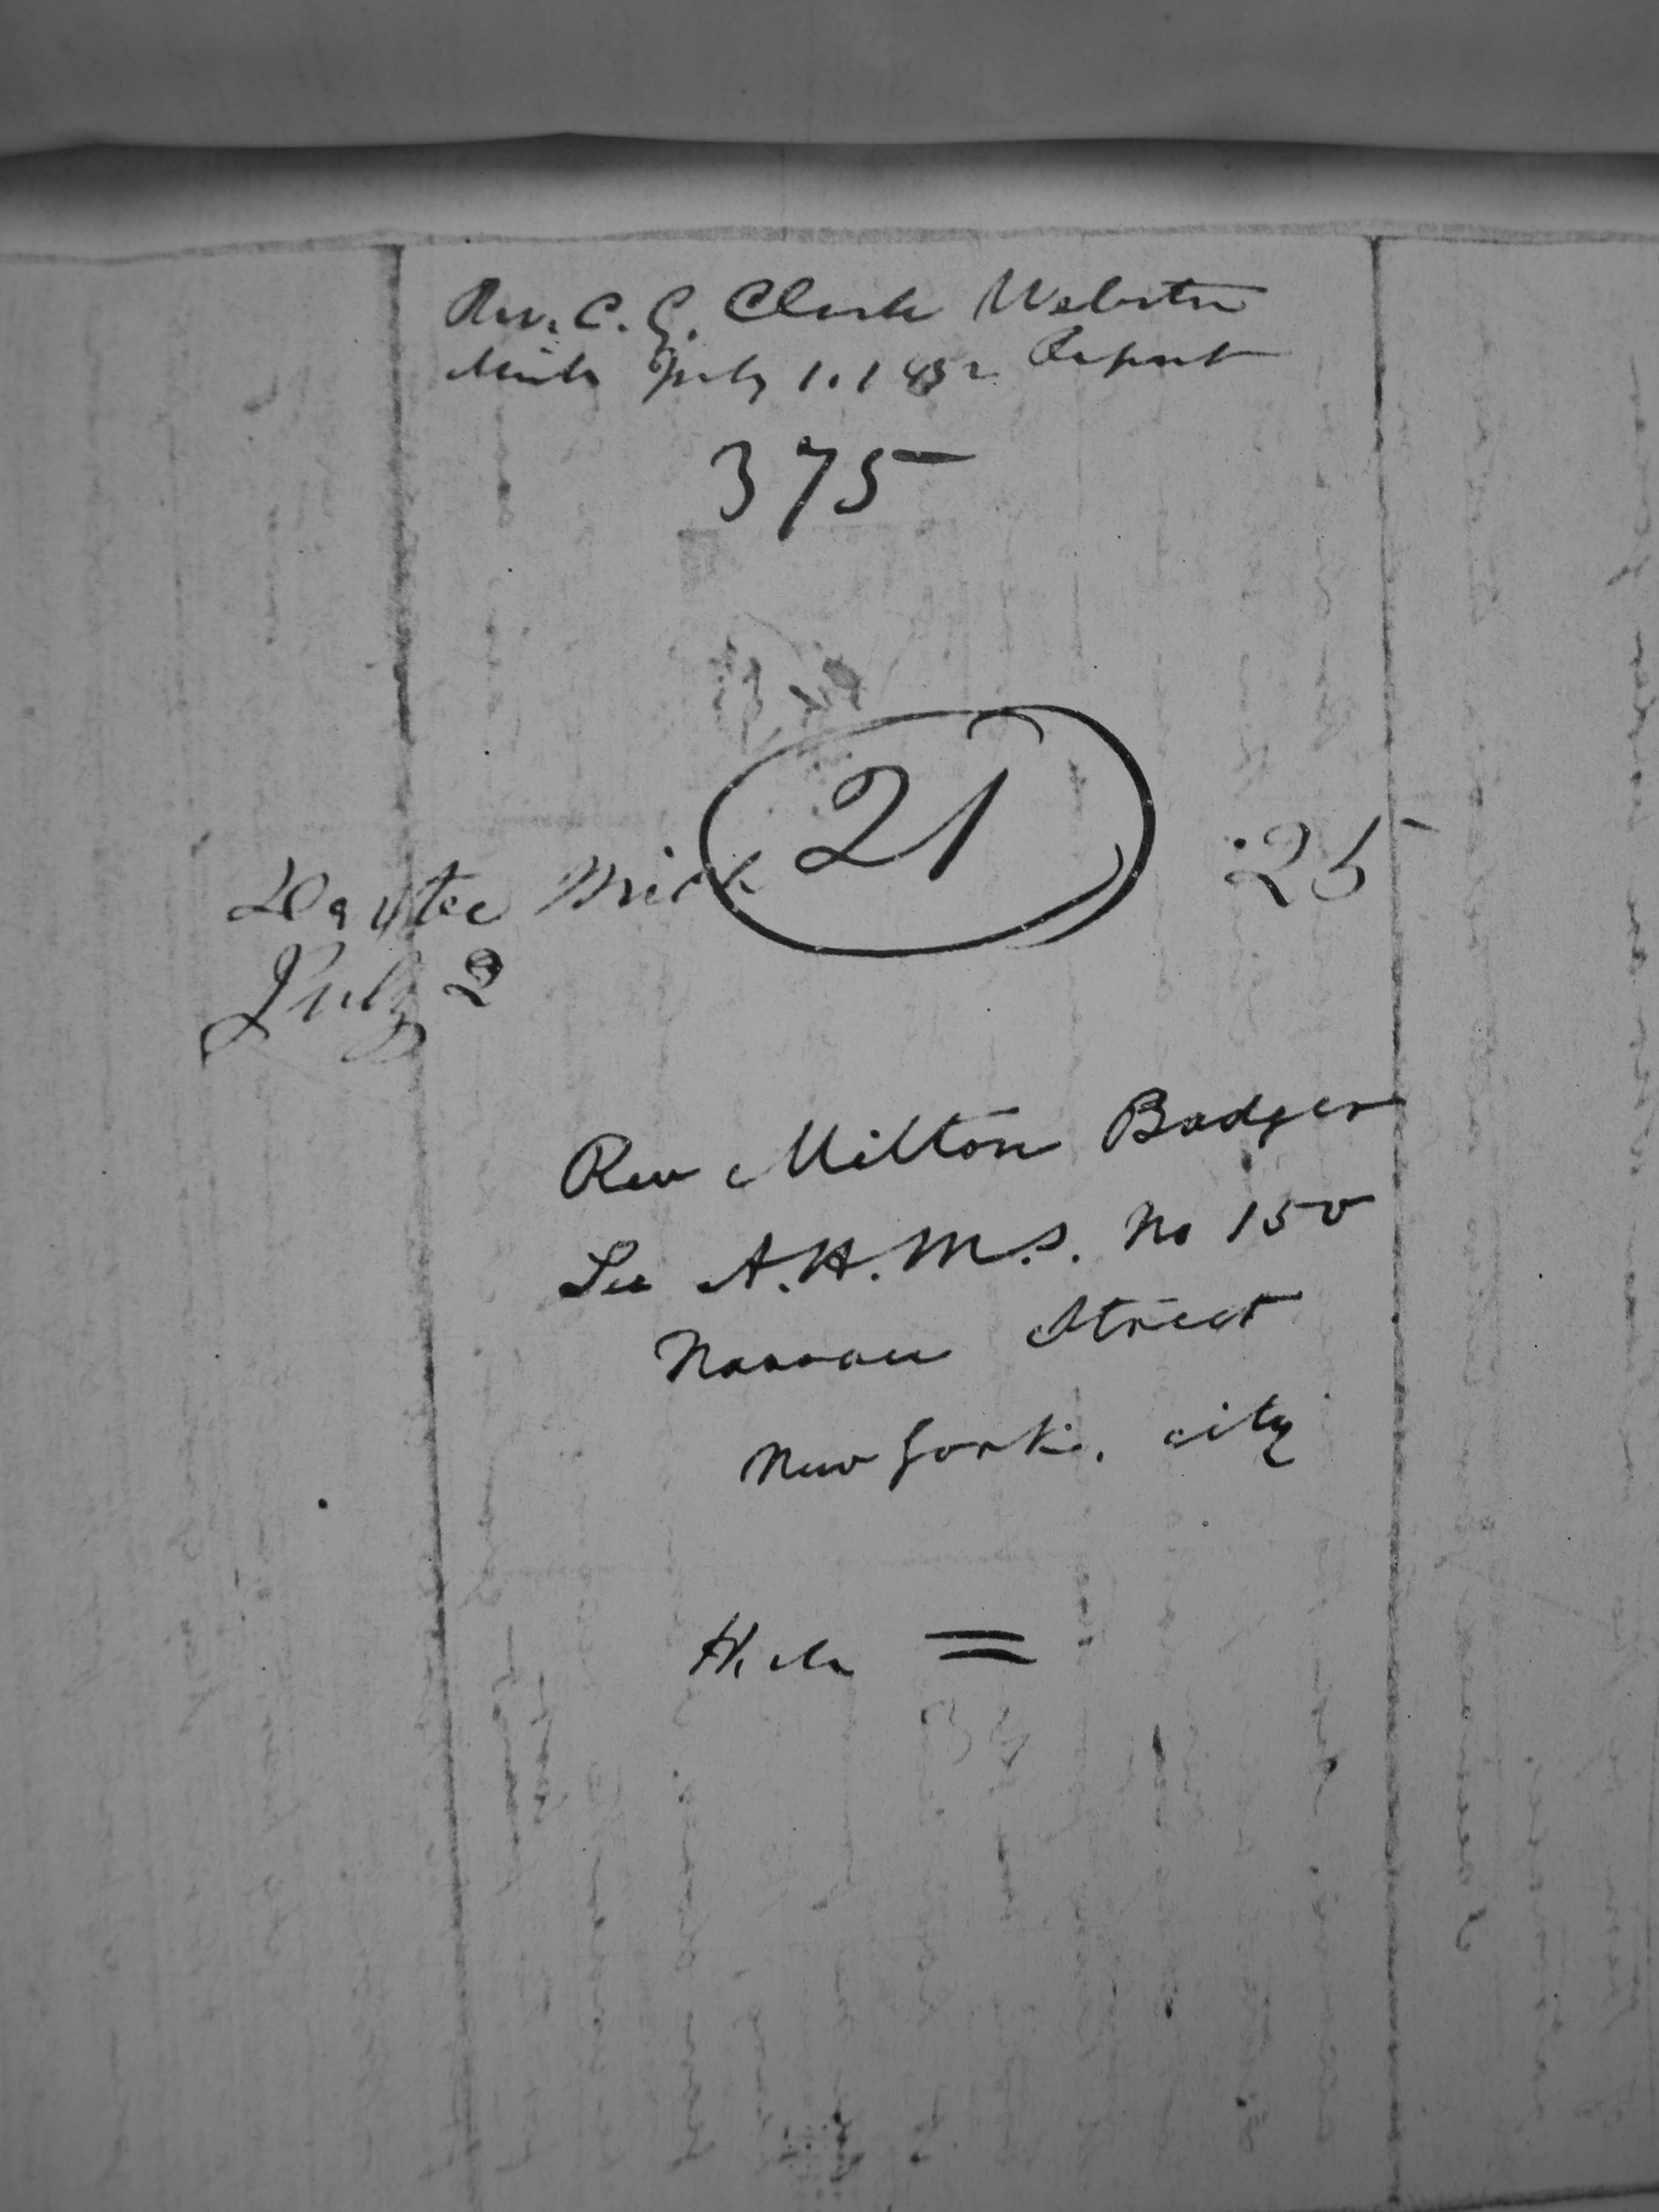 Rev. C. G. Clark Webster
Mich July 1. 1842 Report
375
21
25
Dexter Mich
July 2
Rev Milton Badger
Sec A.H.M.S. No 150
Nassau Street
New York. city
34